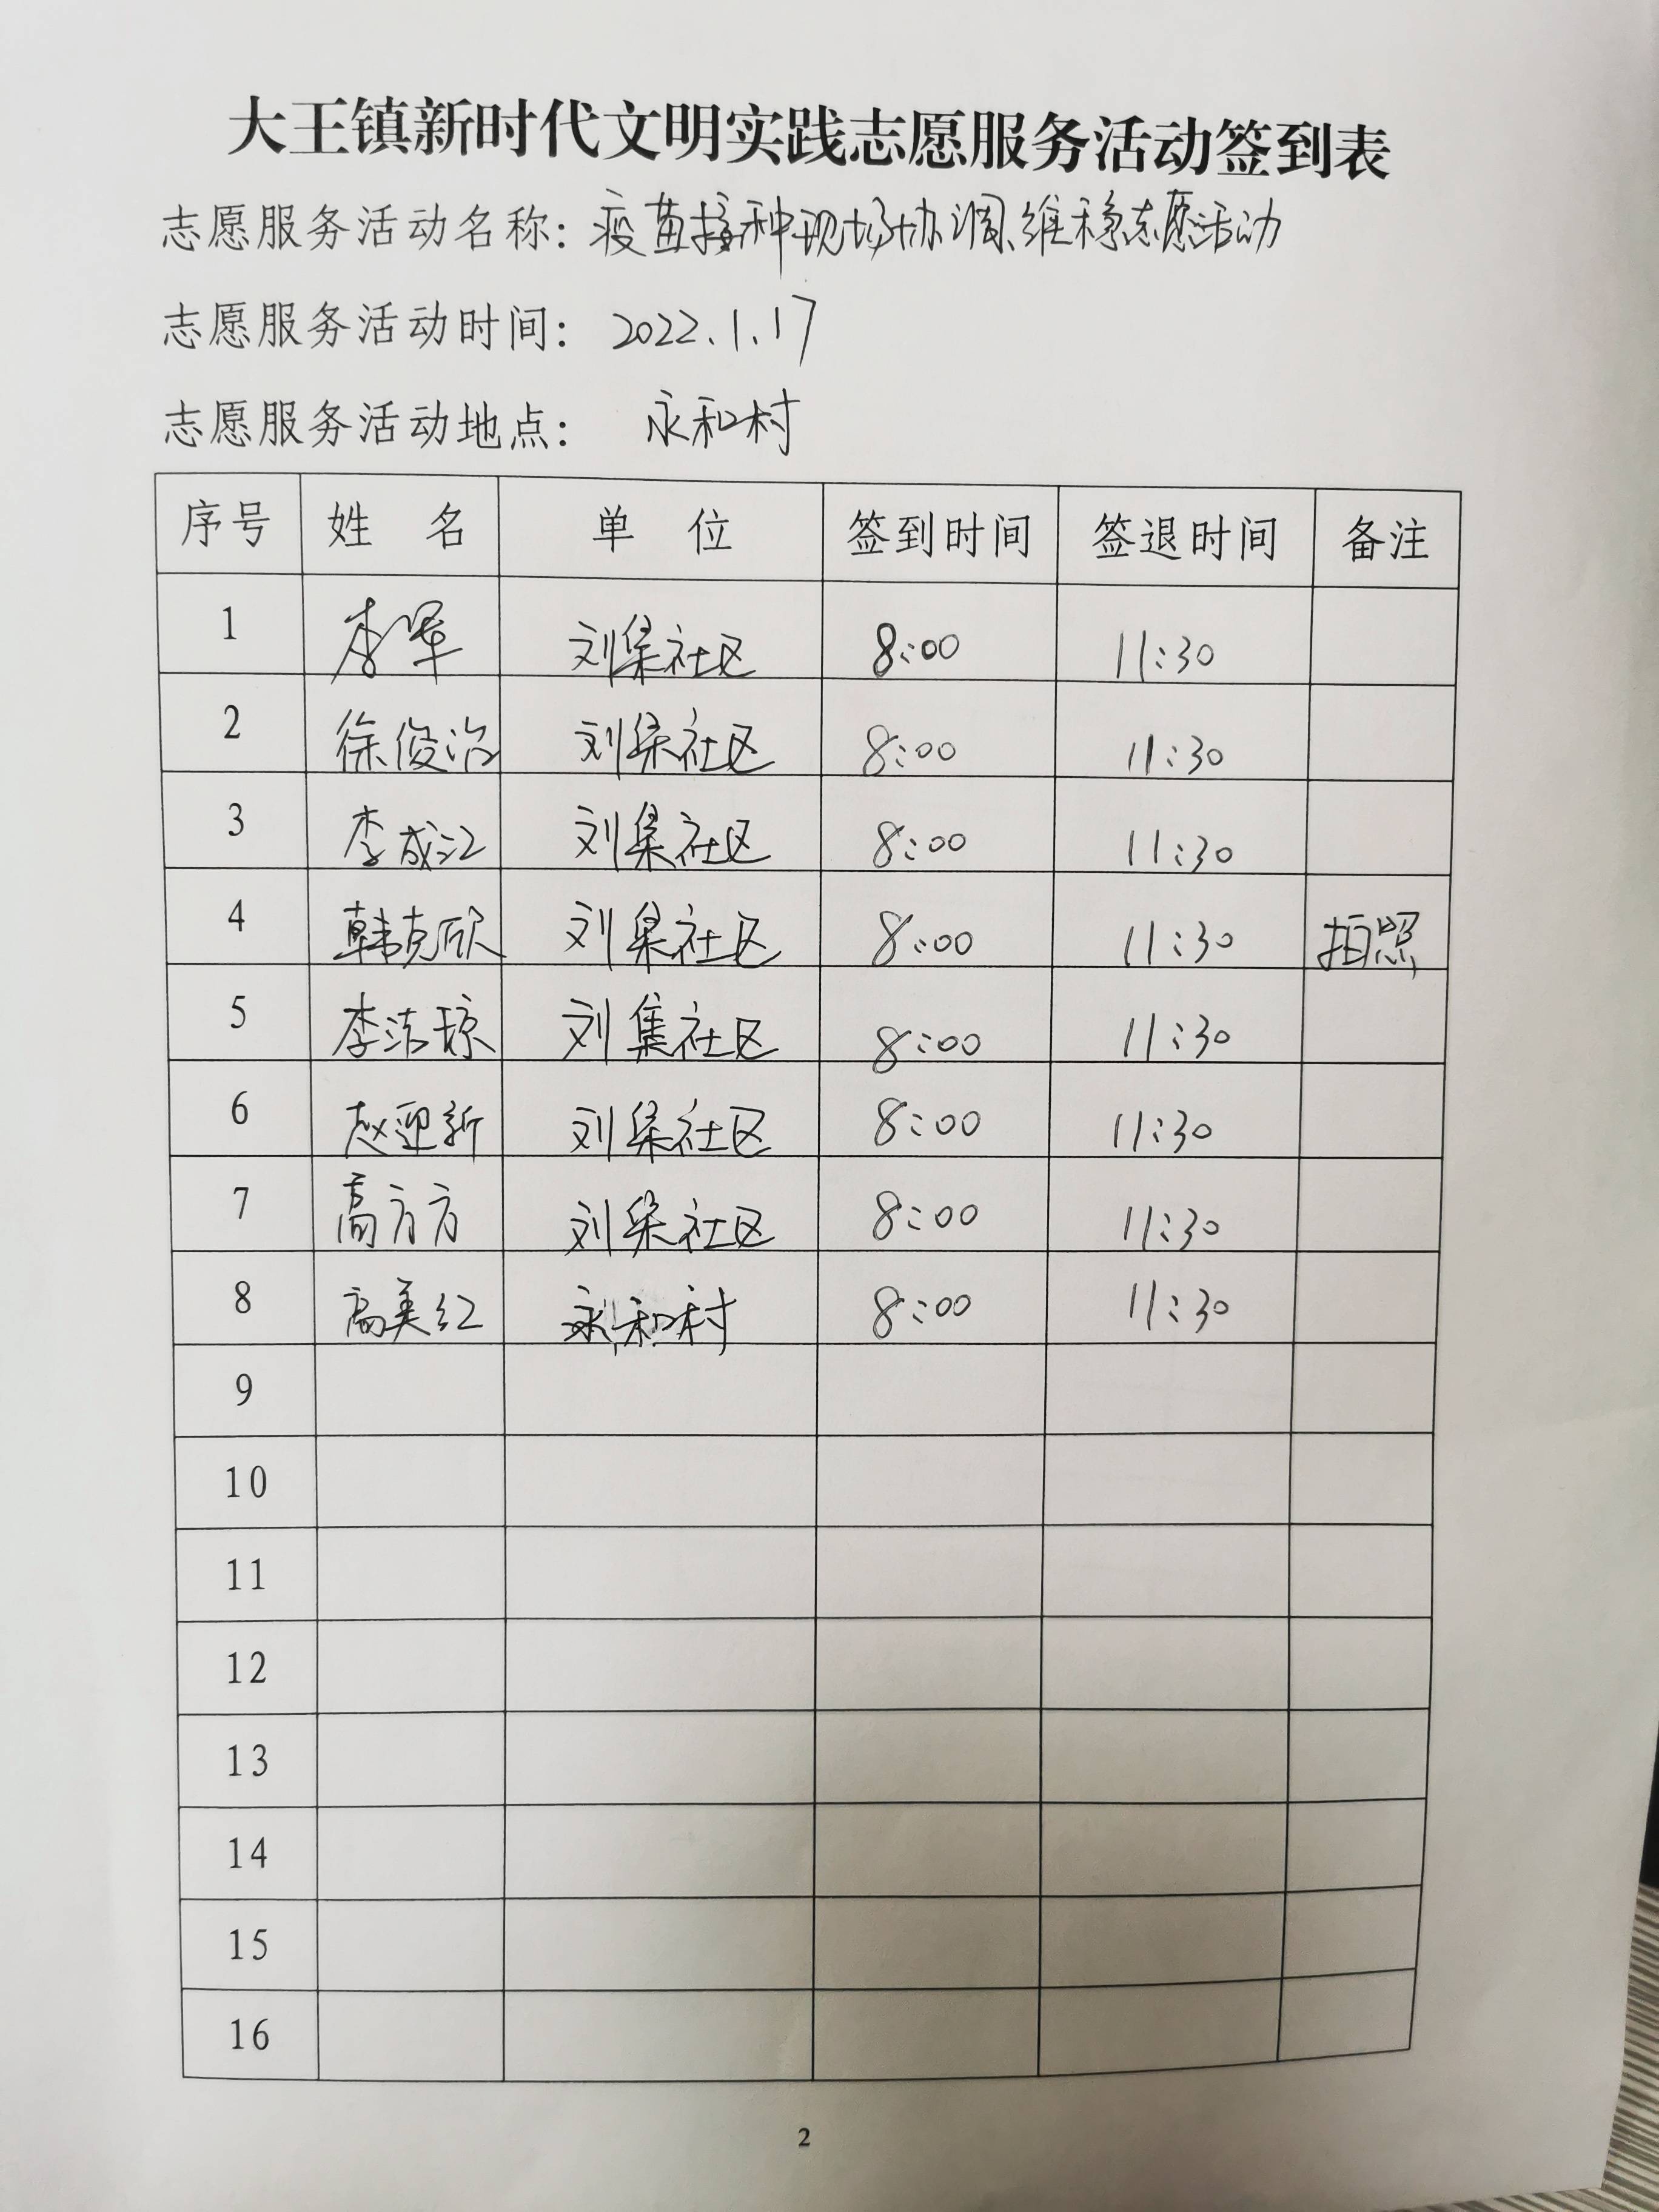 大王镇新时代文明实践志愿服务活动签到表
志愿服务活动名称：疫苗接种现场协调、维稳志愿活动
志愿服务活动时间：2022.1.17
志愿服务活动地点：永和村
序号 姓名 单位 签到时间 签退时间 备注
1 李军 刘集社区 8:00 11:30
2 徐俊治 刘集社区 8:00 11:30
3 李成江 刘集社区 8:00 11:30
4 韩克欣 刘集社区 8:00 11:30 拍照
5 李洁琼 刘集社区 8:00 11:30
6 赵迎新 刘集社区 8:00 11:30
7 高方方 刘集社区 8:00 11:30
8 高美红 永和村 8:00 11:30
9
10
11
12
13
14
15
16
2